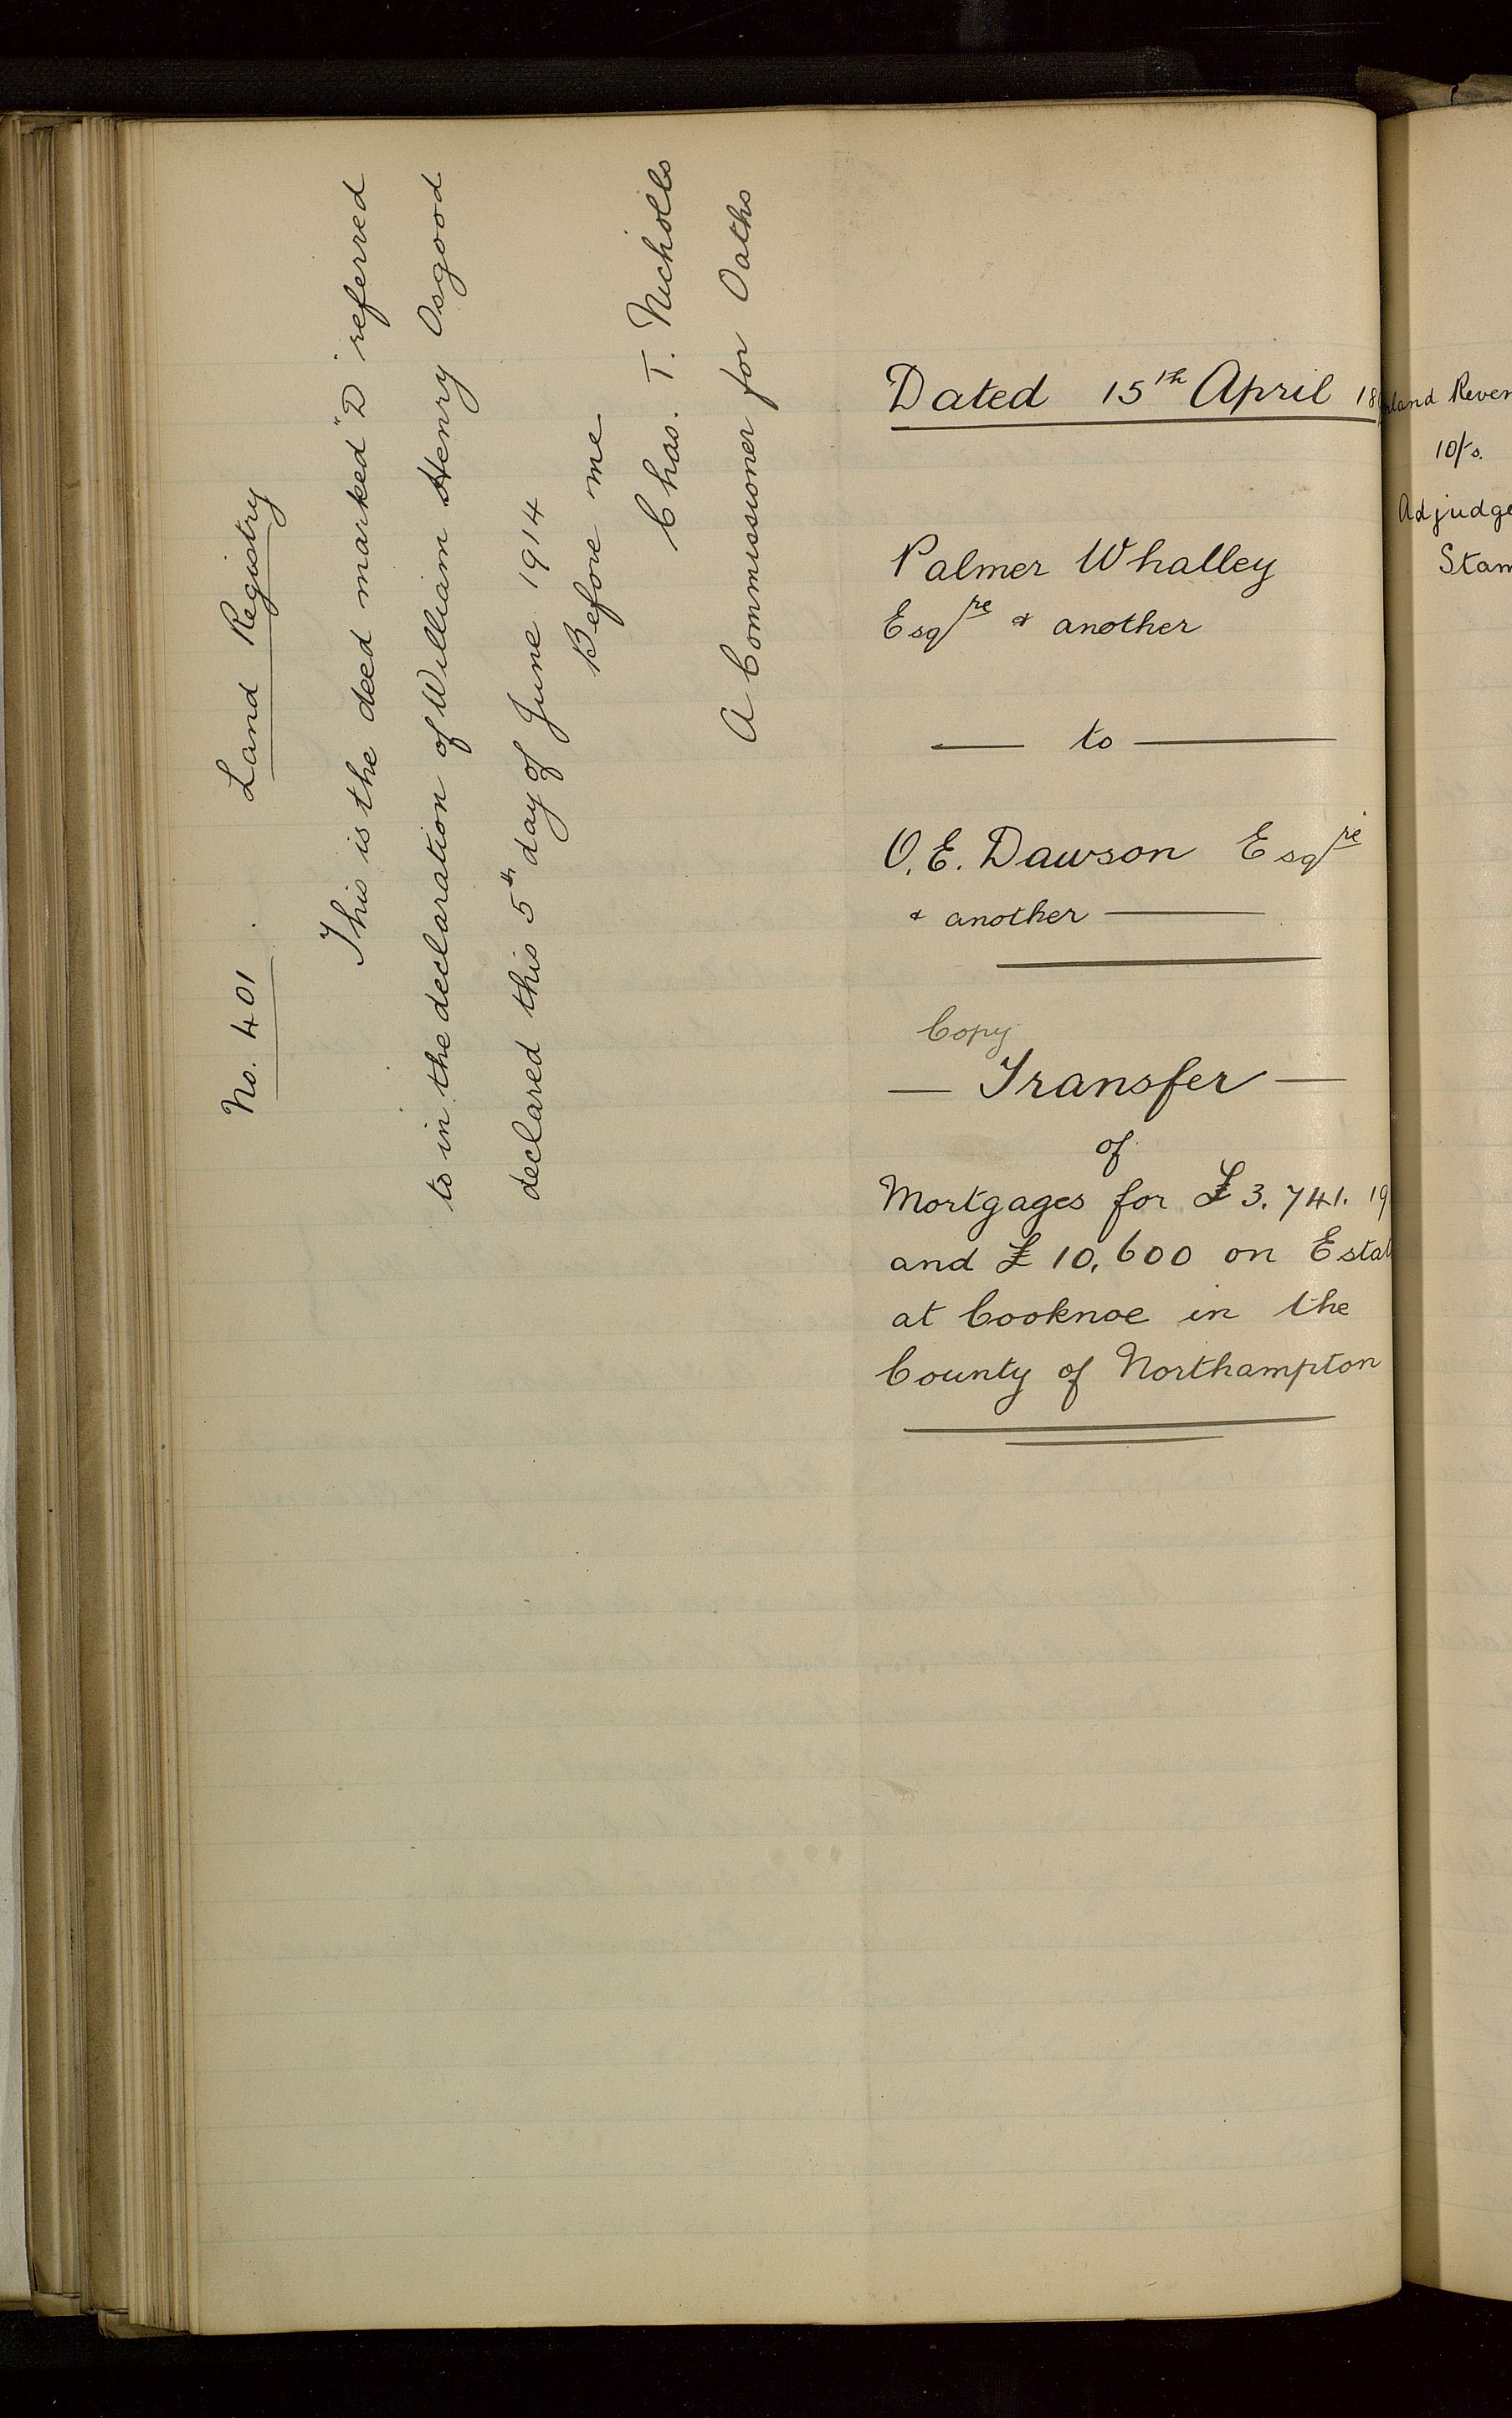 No. 401. Land Registry
This is the deed marked "D" referred
to in the declaration of William Henry Osgood
declared this 5th day of June 1914
Before me
Chas. T. Nicholls
A Commissioner for Oaths
Dated 15th April 18
Palmer Whalley
Esqre & another
— to —
O. E. Dawson Esqre
& another —
Copy
— Transfer —
of
Mortgages for £3,741. 19
and £10,600 on Estat
at Cooknoe in the
County of Northampton
land Reven
10/s.
Adjudge
Stam